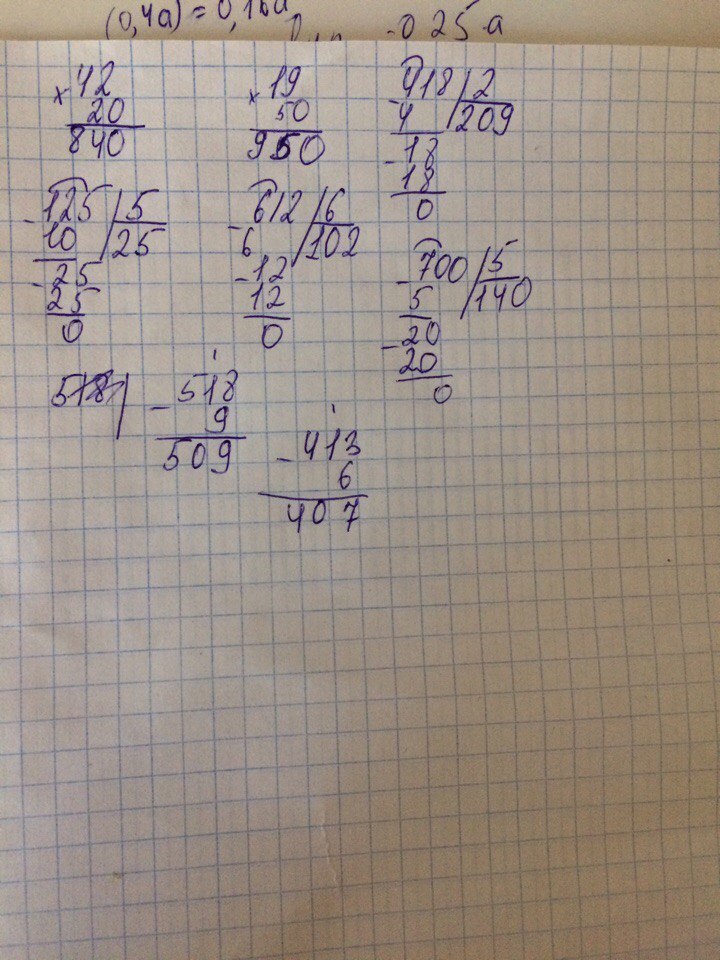 (0,4a) = 0,16a
-0 25 a
× 42
20
840
× 19
50
950
- 418 / 2
4 209
- 18
18
0
- 125 / 5
10 25
- 25
25
0
- 612 / 6
6 102
- 12
12
0
- 700 / 5
5 140
- 20
20
0
- 518
9
509
- 413
6
407